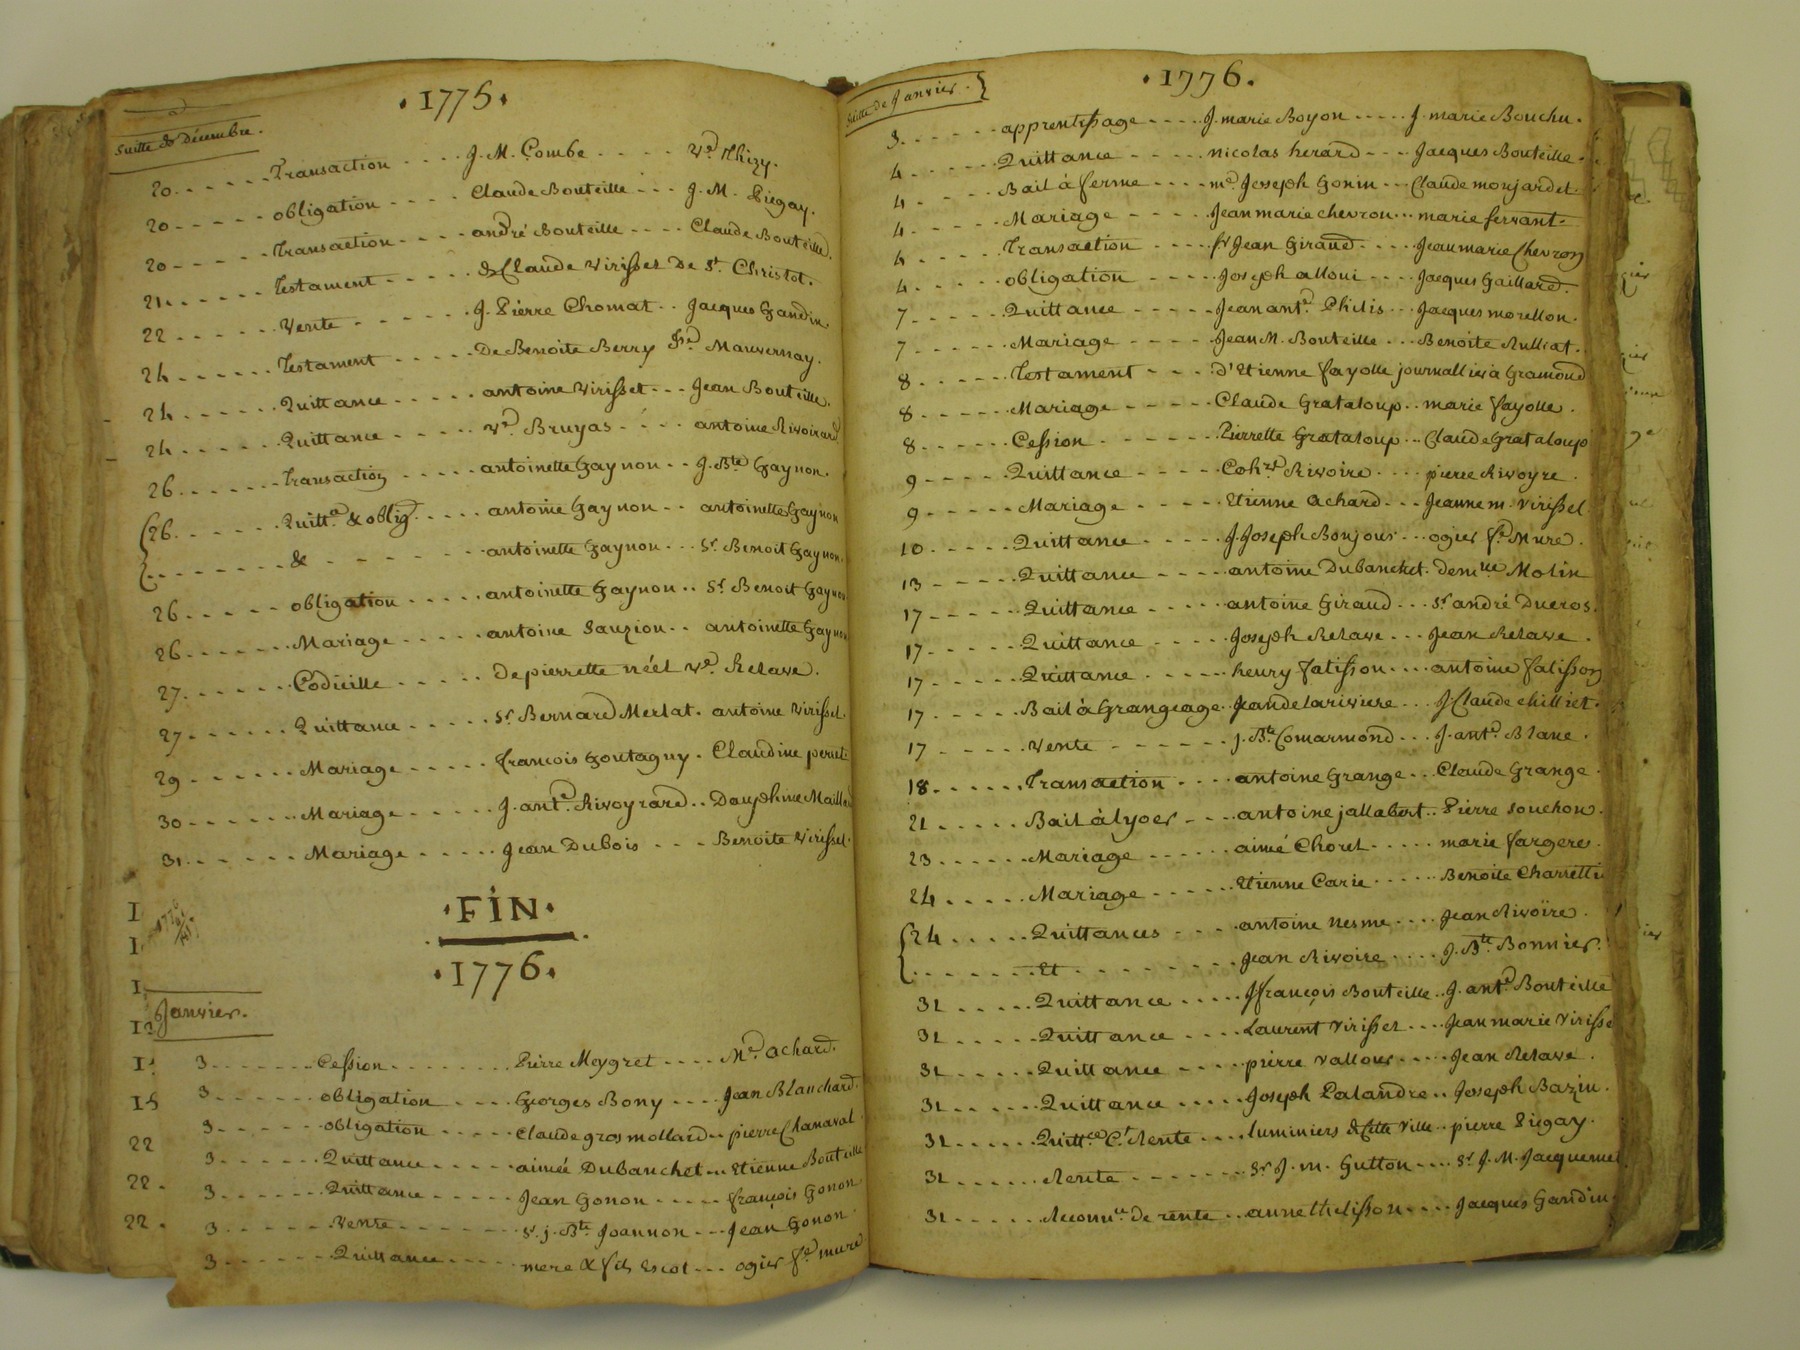 .1775.
Suitte de Décembre.
20 Transaction J. M. Combe Ve. Thizy.
20 obligation Claude Bouteille J. M. Piegay.
20 Transaction andré Bouteille Claude Bouteille.
21 Testament de Claude Virisset De St. Christot.
22 Vente J. Pierre Chomat Jacques Gandin
24 Testament De Benoite Berry Mauvernay.
24 Quittance antoine Virisset Jean Bouteille.
24 Quittance Ve. Bruyas antoine Rivoirard
26 Transaction antoinette Gaynon J. Bte. Gaynon.
26 Quitt.ce & oblig. antoine Gaynon antoinette Gaynon
& antoinette Gaynon Sr. Benoit Gaynon.
26 obligation antoinette Gaynon Sr. Benoit Gaynon
26 Mariage antoine Sauzion antoinette Gaynon
27 Codicille De pierrette néel Ve. Relave.
27 Quittance Sr. Bernard Merlat. antoine Virisset.
29 Mariage françois Goutagny. Claudine
30 Mariage J. ant.e Rivoyrard Dauphine
31 Mariage Jean Dubois Benoite Virisset.
.FIN.
.1776.
Janvier.
3 Cession Pierre Meygret Me. achard.
3 obligation Georges Bony Jean Blanchard.
3 obligation Claude gros mollard pierre Chanaval
3 Quittance aimée Dubanchet Etienne Bouteille
3 Quittance Jean Gonon françois Gonon
3 Vente Sr. j. Bte. Joannon Jean Gonon
3 Quittance mere & fils Escot ogier fe. mure
.1776.
Suitte de Janvier.
3 apprentissage J. marie Boyon J. marie Bouchu.
4 Quittance nicolas herard Jacques Bouteille.
4 Bail à ferme me. Joseph Gonin Claude monjardet.
4 Mariage Jean marie chevron marie ferrant.
4 Transaction fr Jean Giraud Jean marie Chevron
4 obligation Joseph alloui Jacques Gaillard.
7 Quittance Jean ant.e Philis Jacques morellon.
7 Mariage Jean M. Bouteille Benoite Rulliat.
8 Testament d'Etienne fayolle journallier à Gramond
8 Mariage Claude Grataloup marie fayolle.
8 Cession Pierrette Grataloup Claude Grataloup
9 Quittance Rivoire pierre Rivoyre.
9 Mariage Etienne achard Jeanne m. Virissel
10 Quittance J. Joseph Bonjour ogier fe. Mure.
13 Quittance antoine Dubanchet. Dem.lle Molin
17 Quittance antoine Giraud Sr. andré Ducros.
17 Quittance Joseph Relave Jean Relave.
17 Quittance henry fatisson antoine fatisson
17 Bail à Grangeage Jean de lariviere J Claude chilliet.
17 Vente j. Bte. Comarmond J. ant.e Blanc.
18 Transaction antoine Grange Claude Grange.
21 Bail à lyoer antoine jallabert Pierre Souchon.
23 Mariage aimé Choret marie fargere.
24 Mariage Etienne Carie Benoite
24 Quittances antoine nesme Jean Rivoire.
Et Jean Rivoire J. Bte. Bonnier.
31 Quittance J françois Bouteille J. ant.e Bouteille
31 Quittance Laurent Virisset Jean marie Virisse
31 Quittance pierre Vallour Jean Relave.
31 Quittance Joseph Palandre Joseph Bazin.
31 Quitt.ce Ct. Rente luminiers de Cette Ville pierre Pigay.
31 Rente Sr. J. m. Gutton Sr. J. M. Jacquemet
31 de rente anne thelisson Jacques Gandin